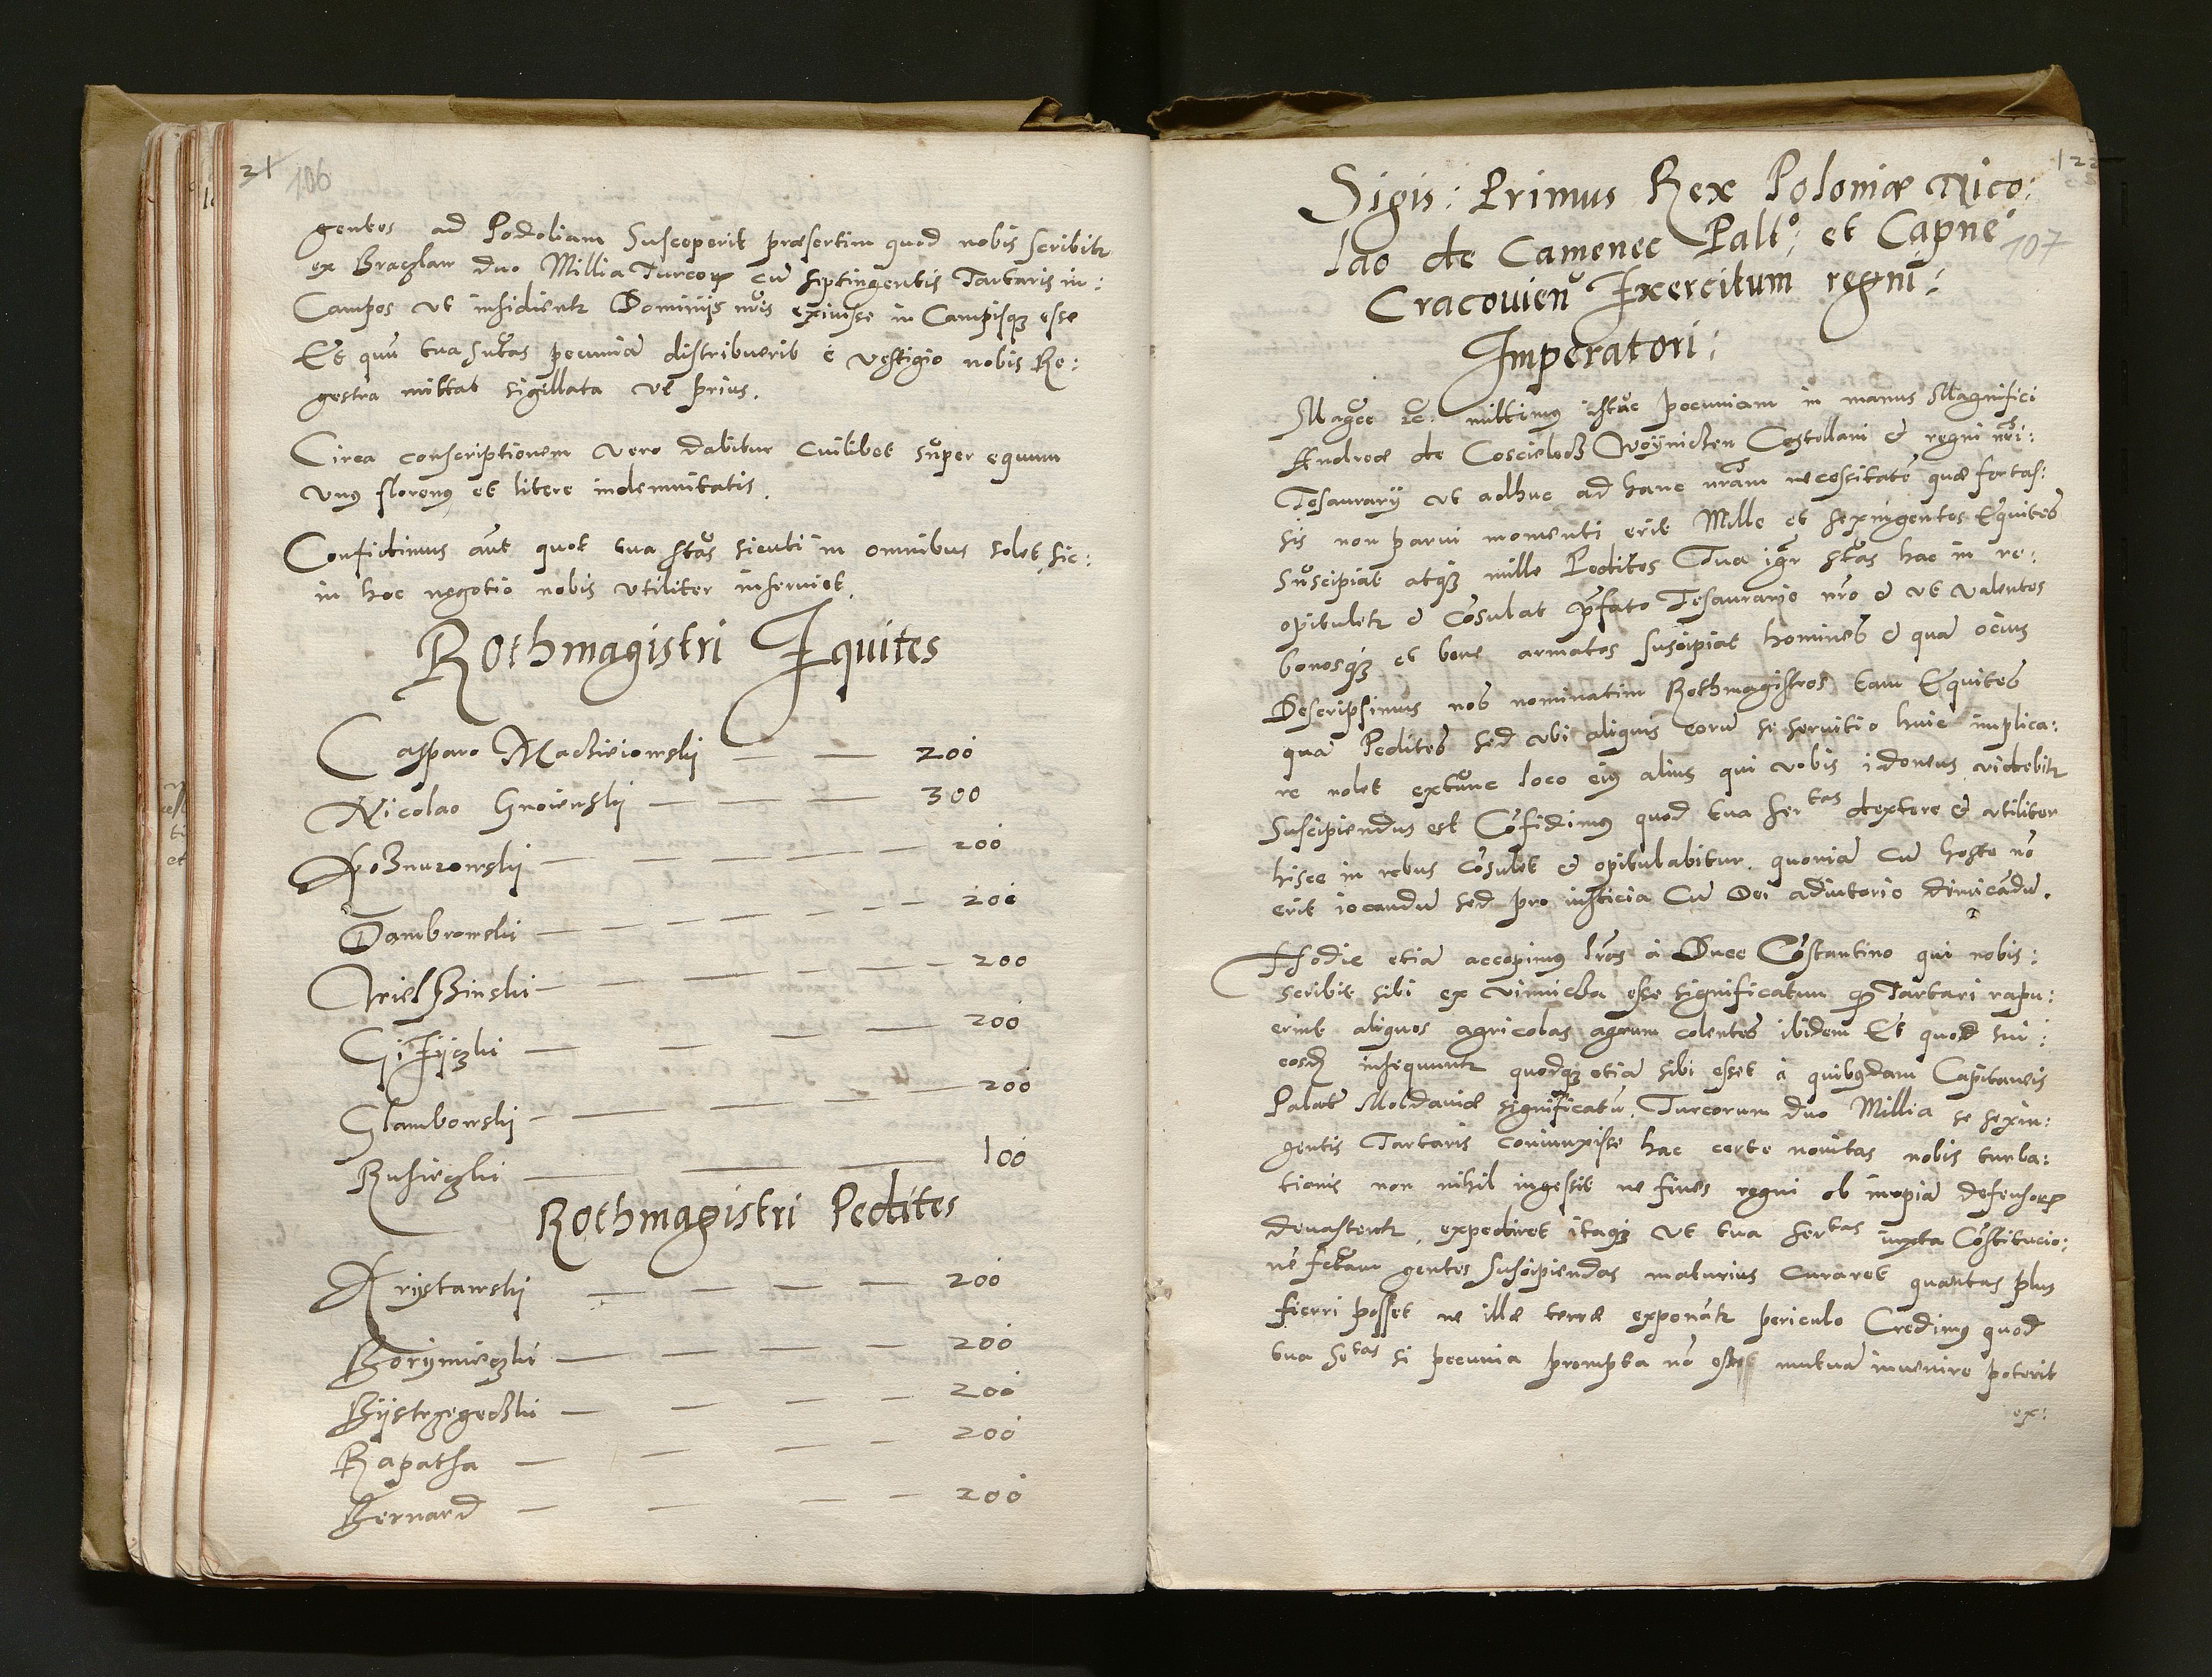 21 106
gentes ad Podoliam Susceperit præsertim quod nobis scribitr
ex Braczlaw duo Millia Turcorꝝ cũ septingentis Tartaris in:
Campos ut insidientr Dominijs nr̃is exiuisse in Campisqꝫ esse
Et quũ tua Sr̃tas pecuniã distribuerit é vestigio nobis Re:
gestra mittat sigillata ut prius.
Circa conscriptionem vero dabitur cuilibet super equum
unꝰ florenꝰ et litere indemnitatis.
Confidimus aũt quot tua str̃as sicuti in omnibus solet sic:
in hoc negotio nobis utiliter inseruiet.
Rothmagistri Equites
Casparo Maczieiowskij 200
Nicolao Gnoienskij 300
Pożnurowskij 200
Dambrowskij 200
Wielżinski 200
Giżijczki 200
Glambowskij 200
Rusieczki 100
Rothmagistri Pedites
Aristawskij 200
Borijmieczki 200
Bijstrzegeczki 200
Rapatha 200
Bernard 200
122
107
Sigis: Primus Rex Poloniæ Nico:
lao de Camenec Palt°: et Capne°
Cracouien̄ Exercitum regni:
Imperatori:
Magce etc. mittimꝰ istuc pecuniam in manus Magnifici
Andreæ de Coscielecz Woÿnicien Castellani & regni nr̃i:
Tesaurarij ut adhuc ad hanc nr̃am necessitatẽ quæ fortas:
sis non parui momenti erit Mille et sexingentos Equites
Suscipiat atqꝫ mille Pedites Tua igr̃ str̃as hac in re:
opituletr & cõsulat p̃fato Tesaurario nr̃o & ut valentes
bonosqꝫ et bene armatos suscipiat homines & quã ocius
Descripsimus nos nominatim Rothmagistros tam Equites
quã Pedites sed ubi aliquis eorũ se seruitio huic implica:
re nolet extunc loco eiꝰ alius qui vobis idoneus videbitr
Suscipiendus est Cõfidimꝰ quod tua Ser^tas dextere & utiliter
hisce in rebus cõsulet & opitulabitur. quoniã cũ hoste nõ
erit iocandũ sed pro iusticia cũ Dei adiutorio dimicãdũ.
Hodie etiã accepimꝰ lr̃as à Duce Cõstantino qui nobis:
scribit sibi ex Vinnicza esse significatum qđ Tartari rapu:
erint aliquos agricolas agrum colentes ibidem Et quod sui:
eosđ insequuntr quodqꝫ etiã sibi esset à quibꝰdam Capitaneis
Palat̃ Moldauiæ significatũ. Turcorum duo Millia se sexin:
gentis Tartaris coniunxisse hac certe nouitas nobis turba:
tionis non nihil ingessit ne fines regni ob inopiã defensorꝝ
deuastentr. expediret itaqꝫ ut tua Ser^tas iuxta Cõstitucio:
nẽ fctam gentes Suscipiendas maturius curaret quantas plus
fierri posset ne illæ terræ exponãtr periculo Credimꝰ quod
tua Se^tas si pecunia prompta nõ esset mutuã inuenire poterit
ex: